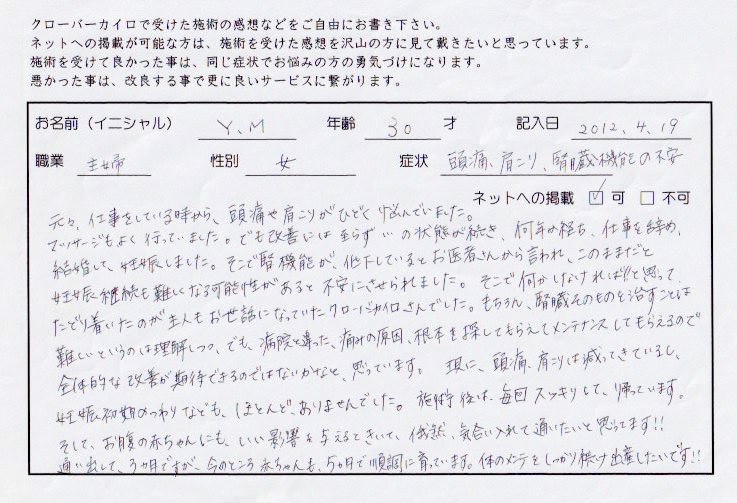 クローバーカイロで受けた施術の感想などをご自由にお書き下さい。
ネットへの掲載が可能な方は、施術を受けた感想を沢山の方に見て戴きたいと思っています。
施術を受けて良かった事は、同じ症状でお悩みの方の勇気づけになります。
悪かった事は、改良する事で更に良いサービスに繋がります。
お名前（イニシャル） Y.M 年齢 30 才 記入日 2012.4.19
職業 主婦 性別 女 症状 頭痛、肩こり、腎臓機能の不安
ネットへの掲載 ☑ 可 □ 不可
元々、仕事をしている時から、頭痛や肩こりがひどく悩んでいました。
マッサージもよく行っていました。でも改善には至らず の状態が続き、何年か経ち、仕事を辞め、
結婚して、妊娠しました。そこで腎機能が、低下しているとお医者さんから言われ、このままだと
妊娠継続も難しくなる可能性があると不安にさせられました。そこで何かしなければ!!と思って
たどり着いたのが主人もお世話になっていたクローバーカイロさんでした。もちろん、腎臓そのものを治すことは
難しいというのは理解しつつ、でも、病院と違った、痛みの原因、根本を探してもらえてメンテナンスしてもらえるので
全体的な改善が期待できるのではないかなと、思っています。 現に、頭痛、肩こりは減ってきているし、
妊娠初期のつわりなども、ほとんど、ありませんでした。施術後は、毎回スッキリして、帰っています。
そして、お腹の赤ちゃんにも、いい影響を与えるときいて、俄然、気合い入れて通いたいと思ってます!!
通い出して、3ヵ月ですが、今のところ赤ちゃんも、5ヵ月で順調に育っています。体のメンテをしっかり続け出産したいです!!